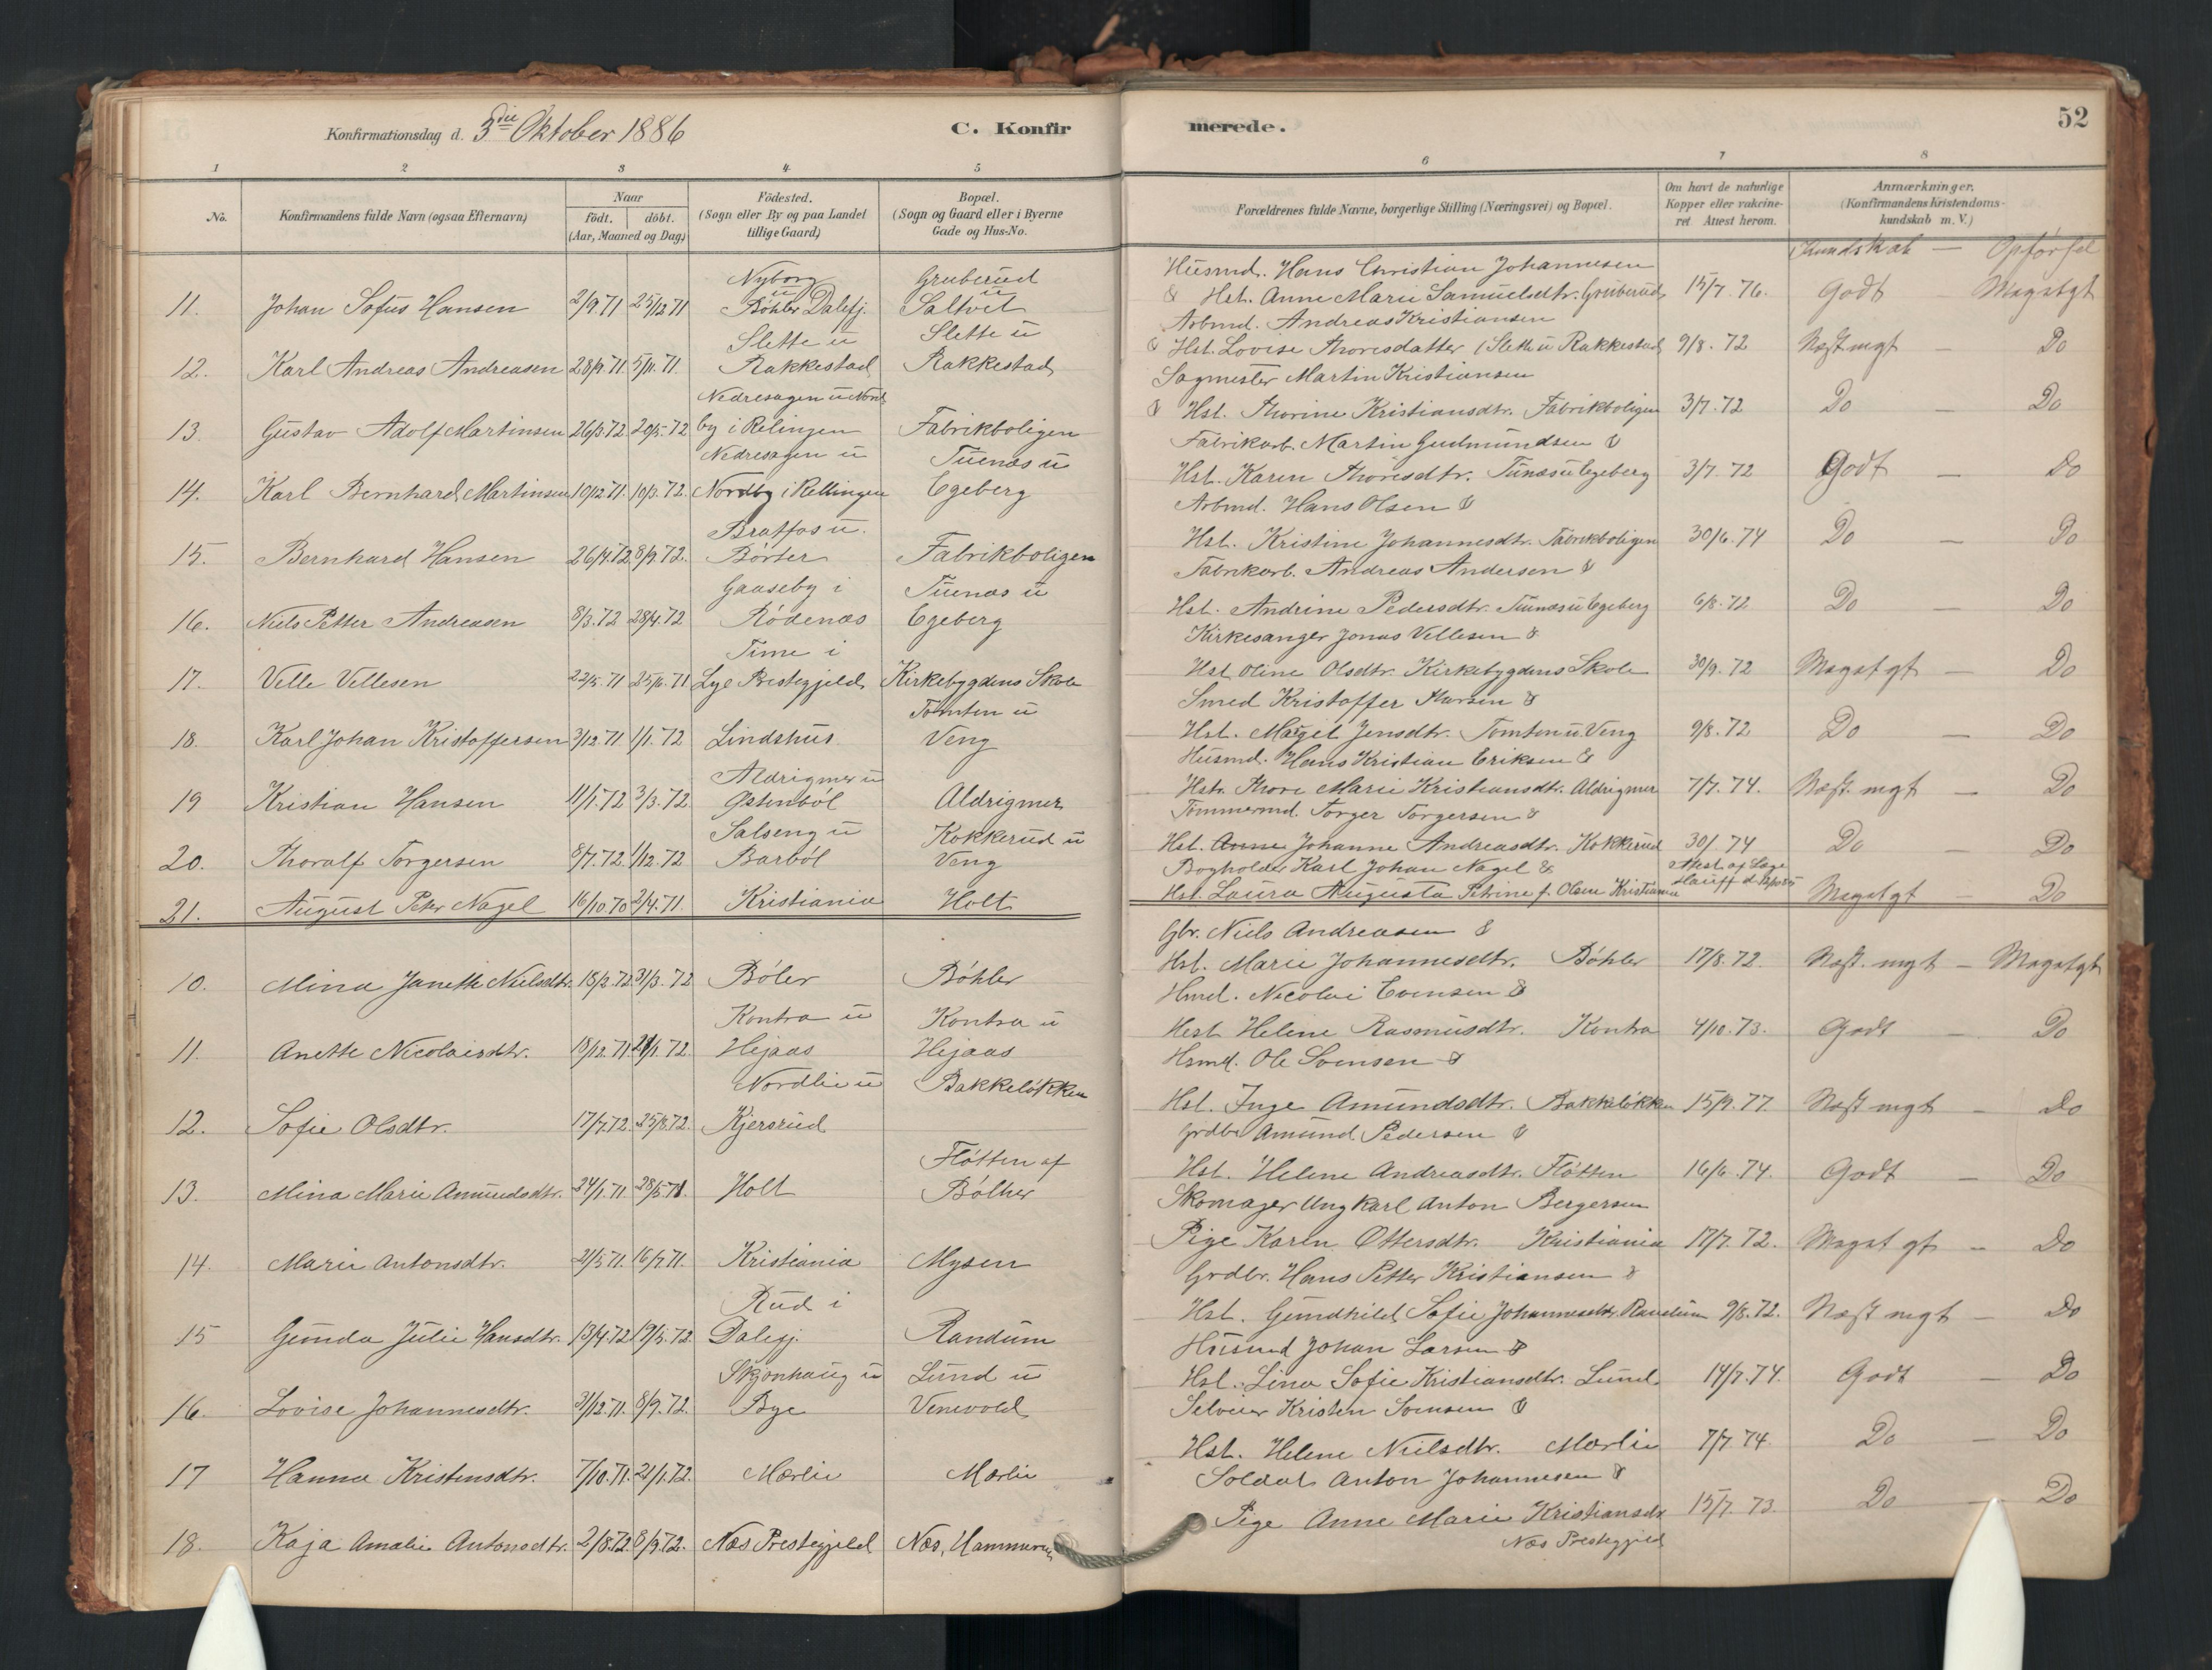 Konfirmationsdag d. 3die Oktober 1886 C. Konfirmerede. 52
1 2 3 4 5 6 7 8
No. Konfirmandens fulde Navn (ogsaa Efternavn) Naar födt. döbt. (Aar, Maaned og Dag) Födested. (Sogn eller By og paa Landet tillige Gaard) Bopæl. (Sogn og Gaard eller i Byerne Gade og Hus-No.
Forældrenes fulde Navne, borgerlige Stilling (Næringsvei) og Bopæl. Om havt de naturlige Kopper eller vakcineret. Attest herom. Anmærkninger. (Konfirmandens Kristendomskundskab m. V.)
Kundskab — Opførsel
Nyborg Gruberud Husmd. Hans Christian Johannesen
11. Johan Sofus Hansen 2/9 71 25/12 71 u Böhler Dalefj. u Saltvet & Hst. Anne Marie Samuelsdtr. Gruberud 15/7. 76. Godt — Megetgt
Slette u Slette u Arbmd. Andreas Kristiansen
12. Karl Andreas Andreasen 28/9. 71 5/11. 71. Rakkestad Rakkestad & Hst. Lovise Thoresdatter (Slette u Rakkestad 9/8. 72 Næst mgt — Do
Nedresagen u Nord Sagmester Martin Kristiansen
13. Gustav Adolf Martinsen 26/3 72 20/5. 72 by i Relingen Fabrikboligen & Hst. Thorine Kristiansdtr. Fabrikboligen 3/7. 72 Do — Do
Nedresagen u Tuenæs u Fabrikarb. Martin Gudmundsen &
14. Karl Bernhard Martinsen 10/12 71. 10/3. 72. Nordby i Rellingen Egeberg Hst. Karen Thoresdtr. Tunæs u Egeberg 3/7. 72 Godt — Do
Bratfos u. Arbmd. Hans Olsen &
15. Bernhard Hansen 26/4 72 8/9. 72. Börter Fabrikboligen Hst. Kristine Johannesdtr. Fabrikboligen 30/6. 74 Do — Do
Gaaseby i Tuenæs u Fabrikarb. Andreas Andersen &
16. Niels Petter Andreasen 8/3. 72 28/4. 72 Rödenæs Egeberg Hst. Andrine Pedersdtr. Tunæs u Egeberg 6/8. 72 Do — Do
Time i Kirkesanger Jonas Vellesen &
17. Velle Vellesen 22/5. 71 25/6. 71 Lye Prestegjeld Kirkebygdens Skole Hst Oline Olsdtr. Kirkebygdens Skole 30/9. 72 Megetgt — Do
Tomten u Smed Kristoffer Hansen &
18. Karl Johan Kristoffersen 3/12 71 1/1. 72 Lindshus Veng Hst. Margit Jensdtr. Tomten u Veng 9/8. 72 Do — Do
Aldrigmer u Husmd. Hans Kristian Eriksen &
19 Kristian Hansen 11/1. 72 3/3. 72. Østenböl Aldrigmer Hstr. Thore Marie Kristiansdtr. Aldrigmer 7/7. 74. Næst. mgt — Do
Salseng u Kokkerud u Tömmermd. Torger Torgersen &
20. Thoralf Torgersen 8/7. 72. 1/12. 72 Barböl Veng Hst. Anne Johanne Andreasdtr. Kokkerud 30/ 74 Do — Do
Bogholder Karl Johan Nagel & Attest af Læge
21. August Peter Nagel 16/10 70 2/4. 71. Kristiania Holt Hst. Laura Augusta Petrine f. Olsen Kristiania Hauff d. Megetgt — Do
Gbr. Niels Andreasen &
10. Mina Janette Nielsdtr. 18/2. 72 31/3. 72 Böler Böhler Hst. Marie Johannesdtr. Böhler 17/8. 72. Næst. mgt — Megetgt
Kontra u Kontra u Hmd. Nicolai Evensen &
11. Anette Nicolaisdtr. 18/12. 71 21/1. 72. Hejaas Hejaas Hest Helene Rasmusdtr. Kontra 4/10. 73. Godt — Do
Nordlie u Bakkelökken Hsmd. Ole Svensen &
12. Sofie Olsdtr. 17/7 72. 25/8. 72. Kjersrud Hst. Inge Amundsdtr. Bakkelökken 15/9. 77. Næst mgt — Do
Flötten af Grdbr Amund Pedersen &
13. Mina Marie Amundsdtr. 24/1. 71. 28/5 71. Holt Bölher Hst. Helene Andreasdtr. Flötten 16/6. 74. Godt — Do
Skomager Ungkarl Anton Bergersen
14. Marie Antonsdtr. 21/5 71. 16/7 71. Kristiania Mysen Pige Karen Ottersdtr. Kristiania 17/7. 72. Meget gt — Do
Rud i Grdbr. Hans Petter Kristiansen &
15 Gunda Julie Hansdtr. 13/4. 72 19/5. 72. Dalegj. Randum Hst. Gundhild Sofie Johannesdtr Randum 9/8. 72. Næst mgt — Do
Skjonhaug u Lund u Husmd Johan Larsen &
16. Lovise Johannesdtr. 31/12. 71. 8/9. 72. Bye Venevold Hst. Lina Sofie Kristiansdtr. Lund 14/7. 74. Godt — Do
Selveier Kristen Svensen &
17 Hanna Kristensdtr. 7/10. 71. 21/1. 72. Mærlie Mærlie Hst. Helene Nielsdtr. Mærlie 7/7. 74. Do — Do
Soldat Anton Johannesen &
18. Kaja Amalie Antonsdtr. 2/8. 72. 8/9. 72. Næs Prestegjeld Næs, Hammeren Pige Anne Marie Kristiansdtr 15/7. 73. Do — Do
Næs Prestegjeld